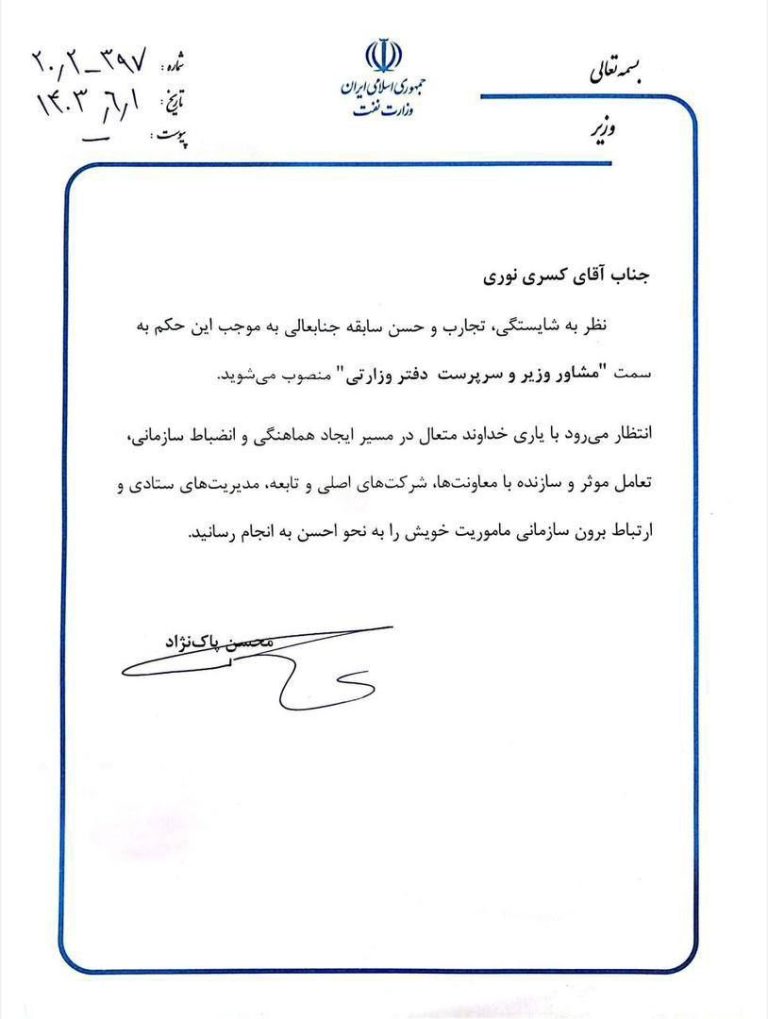 بسمه تعالی
وزیر
جمهوری اسلامی ایران
وزارت نفت
شماره : ۲۰/۲-۳۹۷
تاریخ : ۱۴۰۳/۶/۱
پیوست : ــ
جناب آقای کسری نوری
نظر به شایستگی، تجارب و حسن سابقه جنابعالی به موجب این حکم به
سمت "مشاور وزیر و سرپرست دفتر وزارتی" منصوب می‌شوید.
انتظار می‌رود با یاری خداوند متعال در مسیر ایجاد هماهنگی و انضباط سازمانی،
تعامل موثر و سازنده با معاونت‌ها، شرکت‌های اصلی و تابعه، مدیریت‌های ستادی و
ارتباط برون سازمانی ماموریت خویش را به نحو احسن به انجام رسانید.
محسن پاک‌نژاد